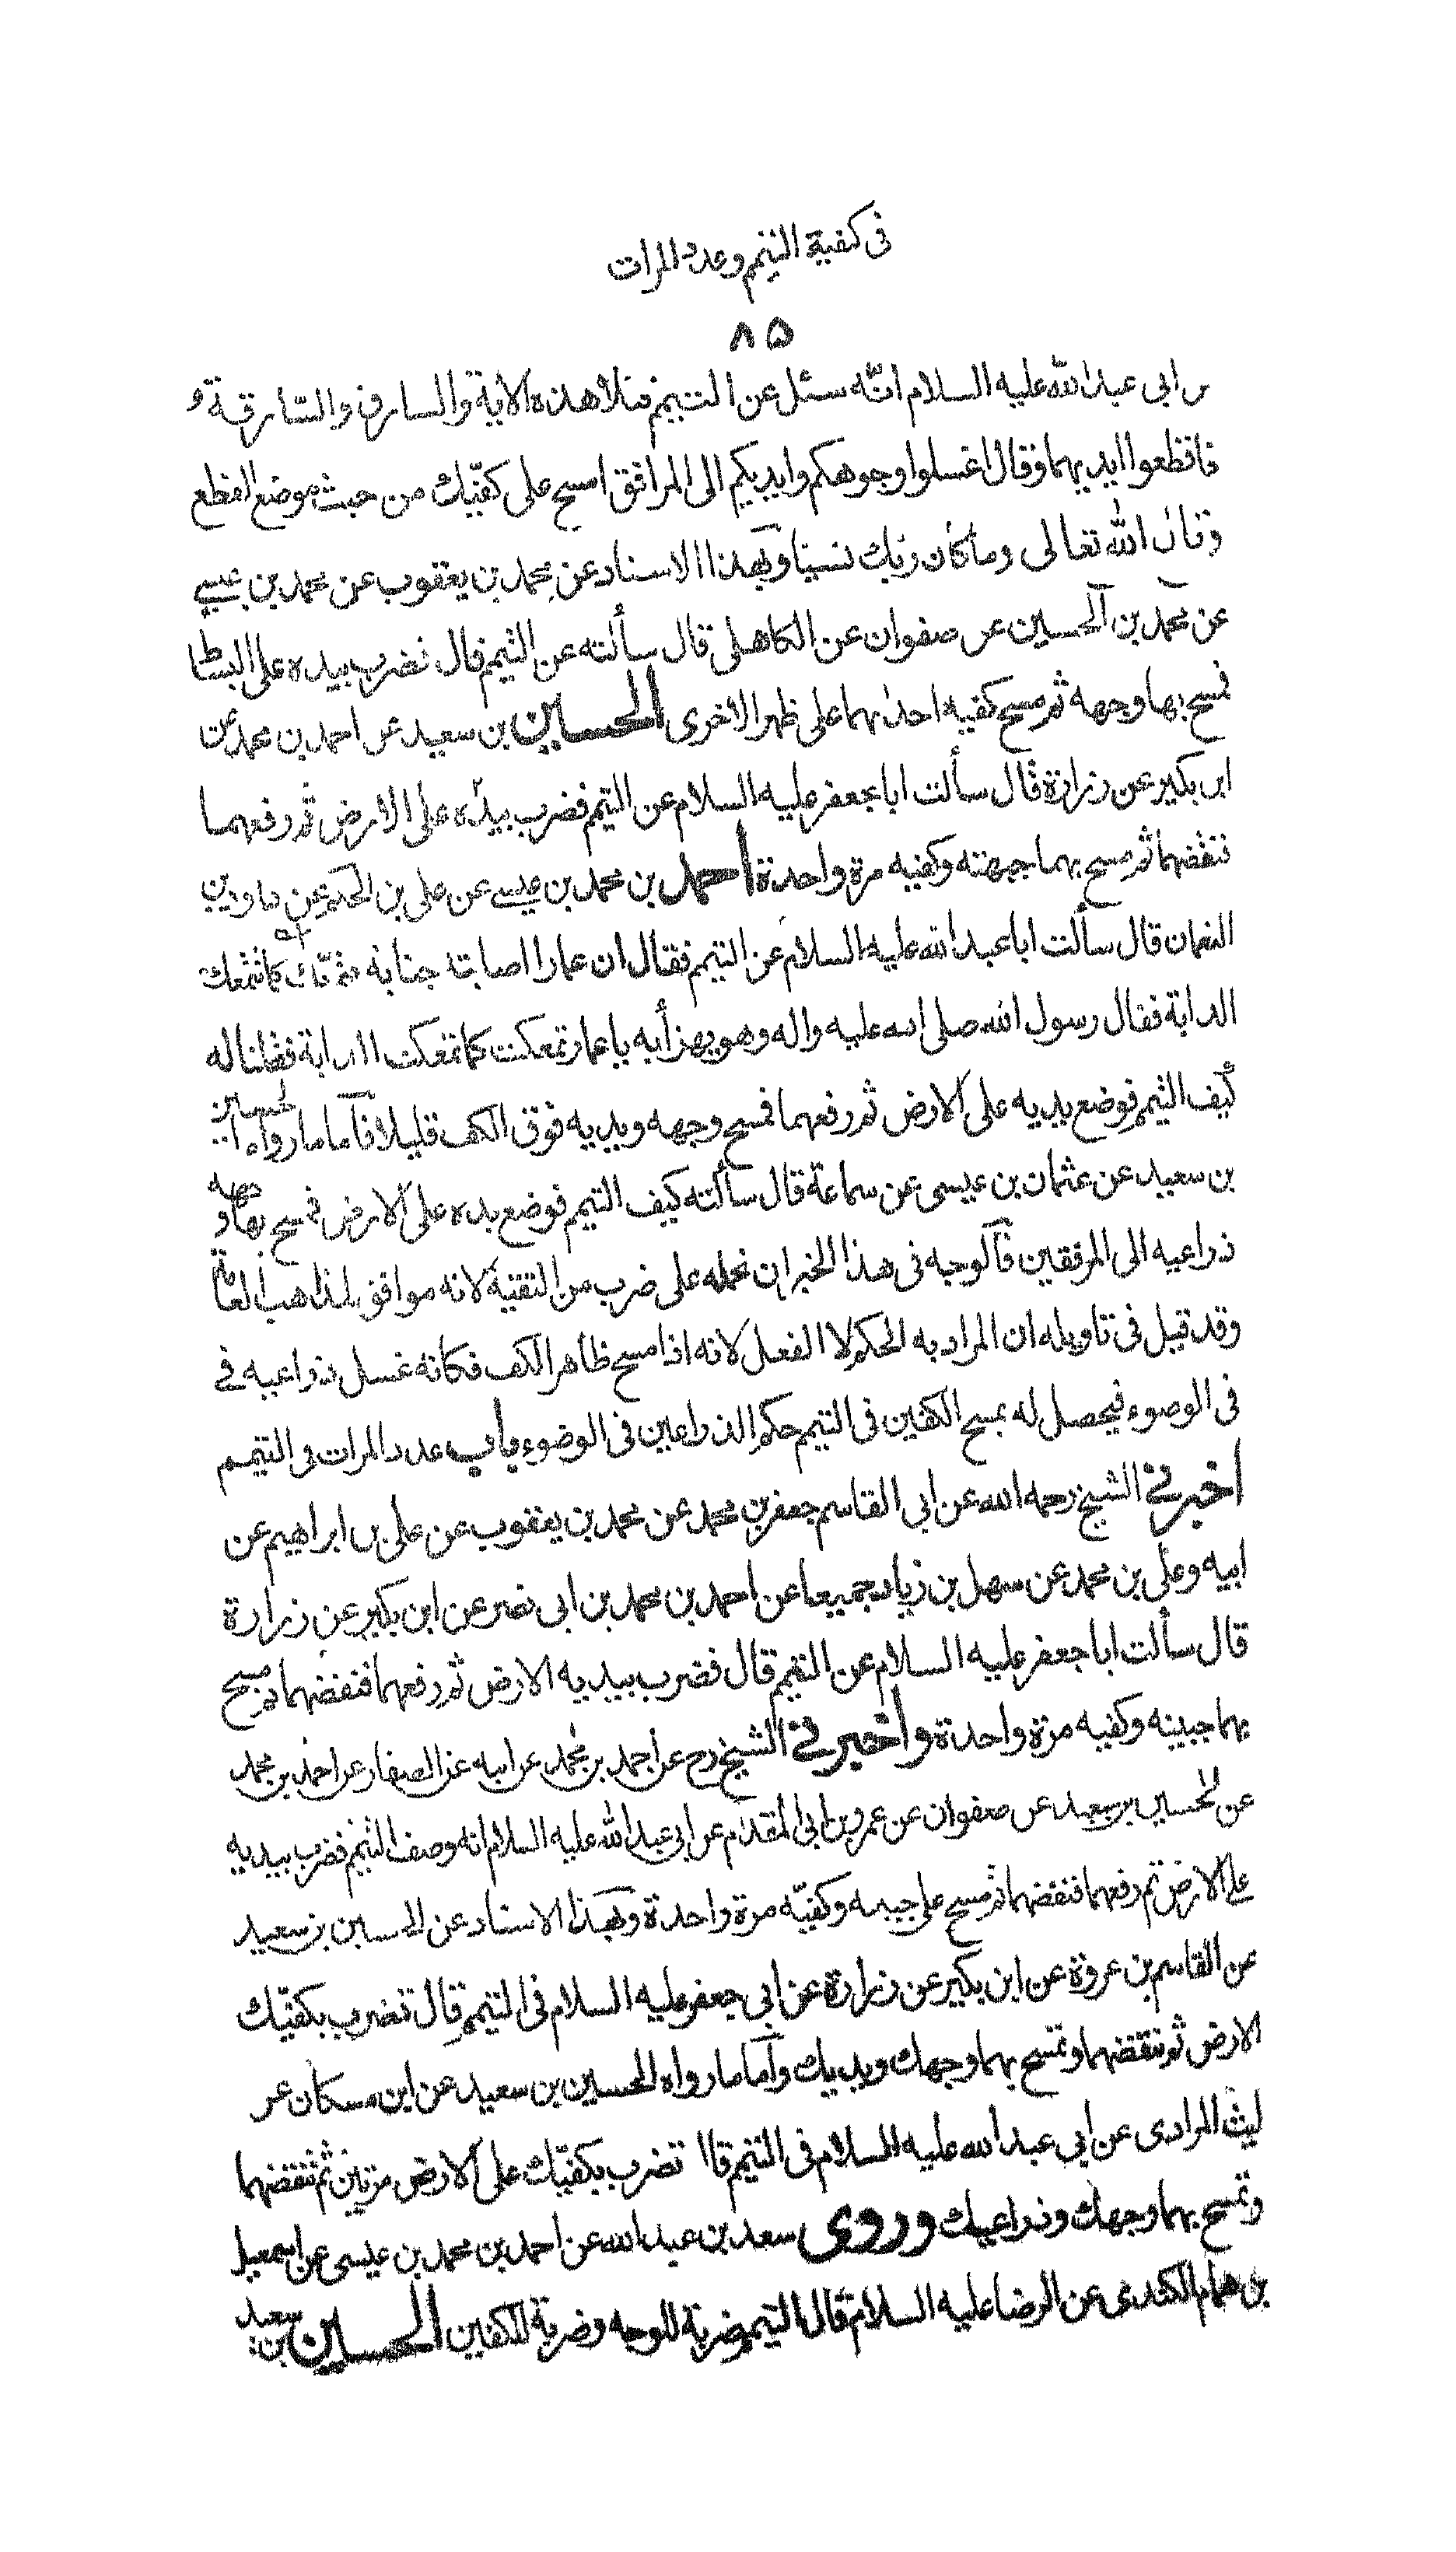 فى كيفية التيمم وعدد المرات
٨٥
ابى عبد الله عليه السلام انّه سئل عن التيمم فتلا هذه الاية والسارق والسّارقة و
فاقطعوا ايديهما وقال اغسلوا وجوهكم وايديكم الى المرافق امسح على كفّيك من حيث موضع القطع
وقال الله تعالى وما كان ربّك نسيّا وبهذا الاسناد عن محمد بن يعقوب عن محمد بن عيسى
عن محمد بن الحسين عن صفوان عن الكاهلى قال سألته عن التيمم قال فضرب بيده على البسا
فمسح بها وجهه ثم مسح كفيه احدٰيهما على ظهر الاخرى الحسين بن سعيد عن احمد بن محمد عن
ابن بكير عن زرارة قال سألت ابا جعفر عليه السلام عن التيمم فضرب بيده على الارض ثم رفعهما
فنفضهما ثم مسح بهما جبهته وكفيه مرة واحدة احمد بن محمد بن عيسى عن على بن الحكم عن داود بن
النعمان قال سألت ابا عبد الله عليه السلام عن التيمم فقال ان عمارا اصابته جنابة فتمعّك كما تتمعك
الدابة فقال رسول الله صلى الله عليه واله وهو يهزأ به يا عمار تمعكت كما تتمعك الدابة فقلنا له
كيف التيمم فوضع يديه على الارض ثم رفعهما فمسح وجهه ويديه فوق الكف قليلا فاما ما رواه الحسين
بن سعيد عن عثمان بن عيسى عن سماعة قال سألته كيف التيمم فوضع يده على الارض فمسح بها وجهه و
ذراعيه الى المرفقين فالوجه فى هذا الخبر ان نحمله على ضرب من التقيّة لانه موافق لمذاهب العامّة
وقد قيل فى تاويله ان المراد به الحكم لا الفعل لانه اذا مسح ظاهر الكف فكانه غسل ذراعيه فى
فى الوضوء فيحصل له بمسح الكفين فى التيمم حكم الذراعين فى الوضوء باب عدد المرات فى التيمم
اخبرنى الشيخ رحمه الله عن ابى القاسم جعفر بن محمد عن محمد بن يعقوب عن على بن ابراهيم عن
ابيه وعلى بن محمد عن سهل بن زياد جميعا عن احمد بن محمد بن ابى نصر عن ابن بكير عن زرارة
قال سألت ابا جعفر عليه السلام عن التيمم قال فضرب بيديه الارض ثم رفعهما فنفضهما ثم مسح
بهما جبينه وكفيه مرّة واحدة واخبرنى الشيخ رح عن احمد بن محمد عن ابيه عن الصفار عن احمد بن محمد
عن الحسين بن سعيد عن صفوان عن عمرو بن ابى المقدام عن ابى عبد الله عليه السلام انه وصف التيمم فضرب بيديه
على الارض ثم رفعهما فنفضهما ثم مسح على جبينه وكفيّه مرة واحدة وبهذا الاسناد عن الحسين بن سعيد
عن القاسم بن عروة عن ابن بكير عن زرارة عن ابى جعفر عليه السلام فى التيمم قال تضرب بكفيّك
الارض ثم تنفضهما وتمسح بهما وجهك ويديك واما ما رواه الحسين بن سعيد عن ابن مسكان عن
ليث المرادى عن ابى عبد الله عليه السلام فى التيمم قال تضرب بكفيّك على الارض مرتين ثم تنفضهما
وتمسح بهما وجهك وذراعيك وروى سعد بن عبد الله عن احمد بن محمد بن عيسى عن اسمعيل
بن همام الكندى عن الرضا عليه السلام قال التيمم ضربة للوجه وضربة للكفين الحسين بن سعيد